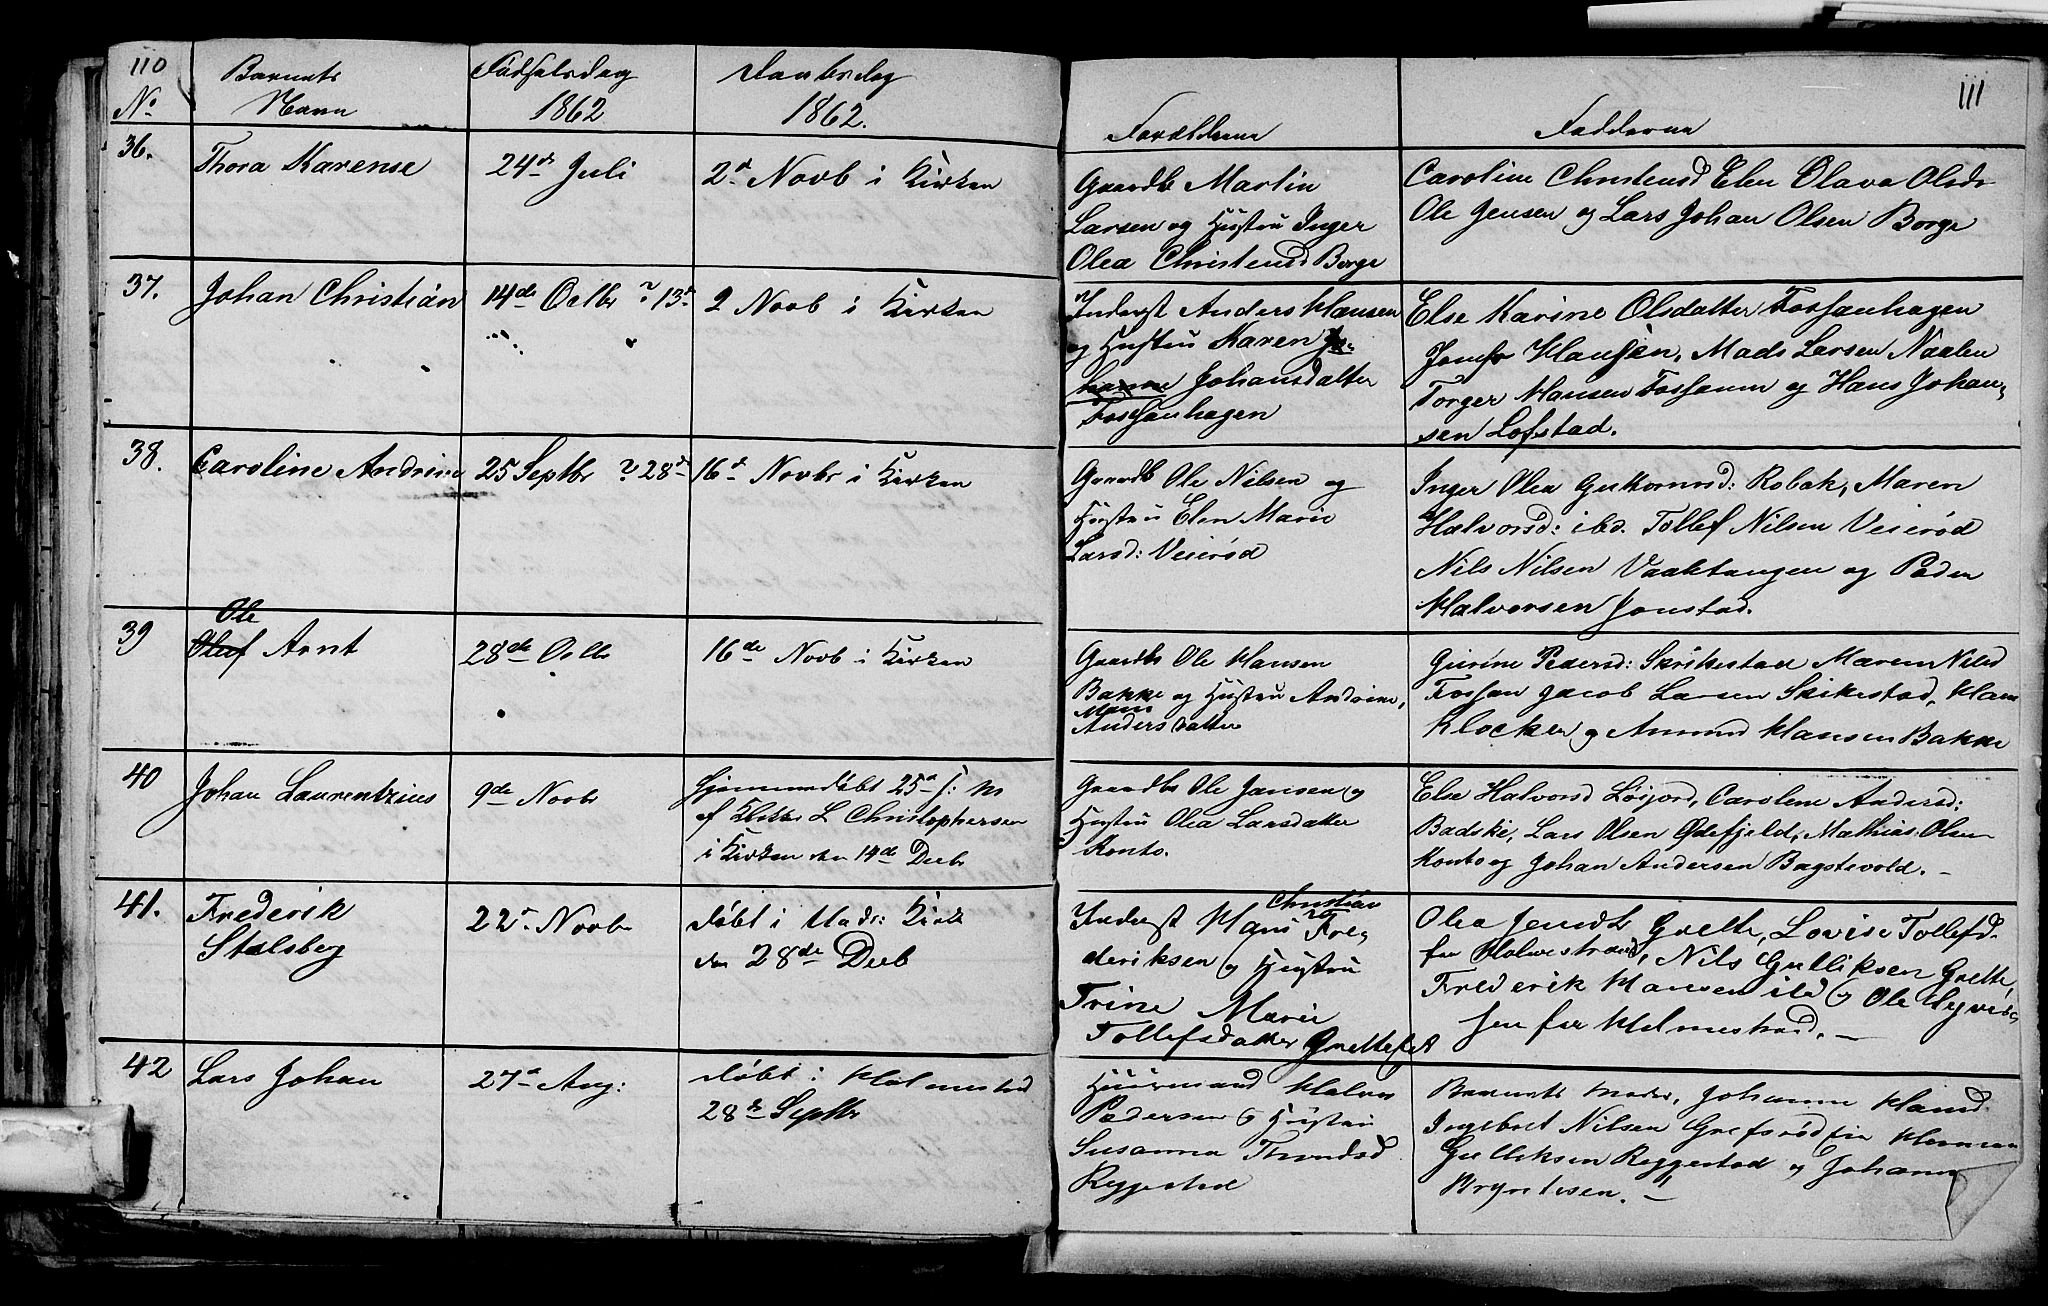 110
No
Barnets
Navn
Fødselsdag
1862
Daabsdag
1862.
36.
Thora Karense
24de Juli
2d Novb i Kirken
37.
Johan Christian
14de Octbr ? 13d
2 Novb i Kirken
38.
Caroline Andrine
25 Septbr ? 28d
16d Novbr i Kirken
39
Ole
Oluf Arnt
28de Octbr
16de Novb i Kirken
40
Johan Laurentzius
9de Novbr
Hjemmedøbt 25d f: M
af L Christophersen
i Kirken den 14de Decb
41.
Frederik
Stalsberg
22d Novbr
døbt i Kirke
den 28de Decb
42
Lars Johan
27d Aug:
døbt i Holmestrd
28de Septbr
111
Forældrene
Fadderne
Gaardb Martin
Larsen og Hustru Inger
Olea Christensd Borge
Caroline Christensd Elen Olava Olsdr
Ole Jensen og Lars Johan Olsen Borge
Inderst Anders Hansen
og Hustru Karen Jo-
hanne Johansdatter
Fossanhagen
Else Karine Olsdatter Fossanhagen
Hansen, Mads Larsen Naalen
Torger Hansen Fossann og Hans Johan-
sen Lofstad.
Gaardb Ole Nilsen og
Hustru Elen Marie
Larsd: Veierød
Inger Olea Guttormsd: Robak, Maren
Halvorsd: ibd. Tollef Nilsen Veierød
Nils Nilsen Vaaktangen og Peder
Halvorsen Jonstad.
Gaardbr Ole Hansen
Bakke og Hustru Andrine
Marie
Andersdatter
Gurine Pedersd: Skrikestad Maren Nilsd
Fossan Jacob Larsen Skikestad, Hans
Klocker og Amund Hansen Bakke
Gaardbr Ole Jansen og
Hustru Olea Larsdatter
Konto.
Else Halvorsd Løsjord, Caroline Andersd:
Badske, Lars Olsen Ødefjeld, Mathias Olsen
Konto og Johan Andersen Bagstevold. –
Christian
Inderst Hans Fre-
deriksen og Hustru
Trine Marie
Tollefsdatter Gretteeiet
Olea Jensdtr Grette, Lovise Tollefsd.
fra Holmestrand, Nils Gulliksen Grette,
Frederik Hansen ibd og Ole
sen fra Holmestrand. –
Huusmand Halvor
Pedersen og Hustru
Susanna Trondsd
Reggestad
Barnets Moder, Johanne Hansd.
Ingebret Nilsen Grefsrød Herman
Gulliksen Reggestad og Johann
Brynildsen. –